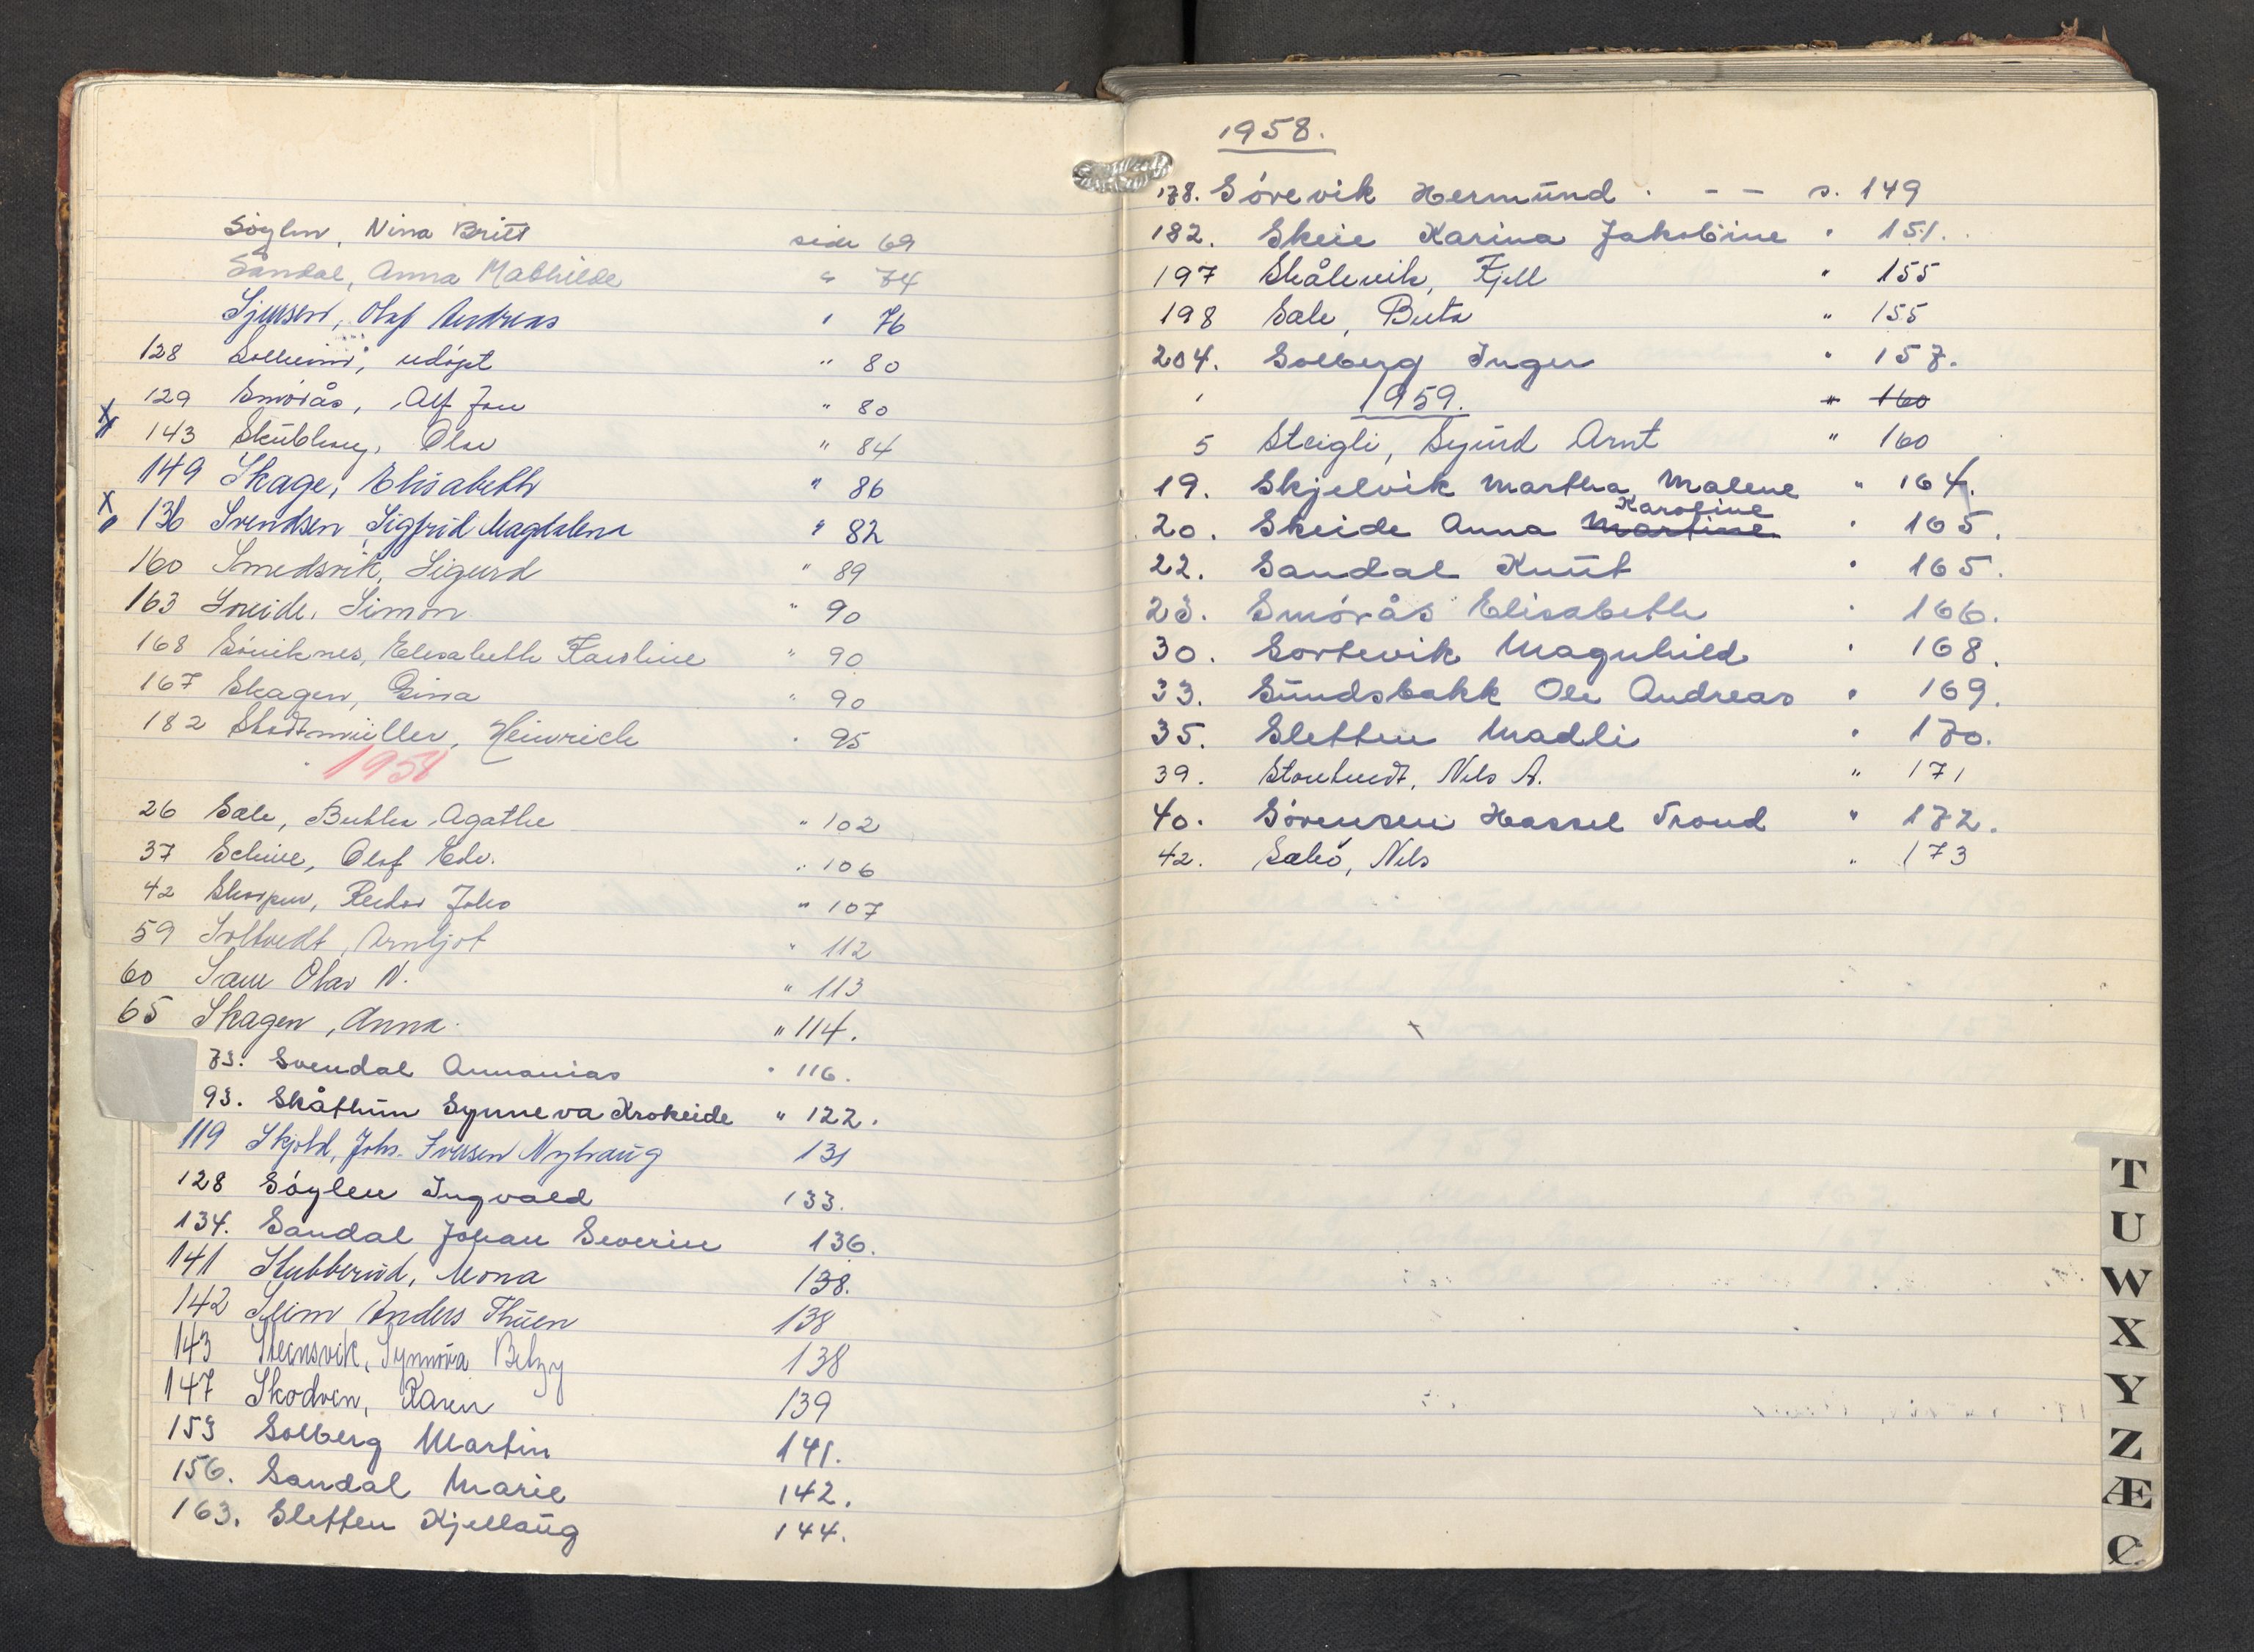 Søylen, Nina Britt side 69
Sandal, Anna Mathilde " 74
Sjursen, Olaf Andreas " 76
128 Solheim, udøpt " 80
129 Smørås, Alf Jon " 80
x " 143 Olav " 84
149 Skage, Elisabeth " 86
x " 136 Svendsen Sigfrid Magdalena " 82
160 Smedsvik, Sigurd " 89
163 Sneide, Simon " 90
168 Elisabeth Karoline " 90
167 Skagen, Gina " 90
182 Stadtmüller, Heinrich " 95
1958
26 Sæle, Agathe " 102
37 Olaf Edv. " 106
42 Johs " 107
59 Soltvedt, Arnljot " 112
60 Olav N. " 113
65 Skagen, Anna. " 114.
73. Svendal Annanias " 116.
93. Skåthun Synneva Krokeide " 122.
119 Skjold, Johs. Iversen Nyhaug 131
128 Søylen Ingvald 133.
134. Sandal Johan Severin 136.
141 Stubberud, Mona 138.
142 Slim Anders Thuen 138
143 Steinsvik, Synnøva Betzy 138
147 Skodven, Karen 139
153 Solberg Martin 141.
156. Sandal Marie 142.
163. Sletten Kjellaug 144.
1958.
178. Sørevik Hermund . - - s. 149
182. Skeie Karina Jakobine " 151.
197 Skålevik, Kjell " 155
198 Sæle, Berta " 155
204. Solberg Inger " 157.
1959. " 160
5 Steigli, Sjurd Arnt " 160
19. Skjelvik Martha Malene " 164.
Karoline
20. Skeide Anna Martine " 165.
22. Sandal Knut " 165.
23. Smørås Elisabeth " 166.
30. Sortevik Magnhild " 168.
33. Sundsbakk Ole Andreas " 169.
35. Sletten Madli " 170.
39. Nils A. " 171
40. Sørensen Hassel Trond " 172.
42. Sæbø, Nils " 173
T
U
W
X
Y
Z
Æ
Ø